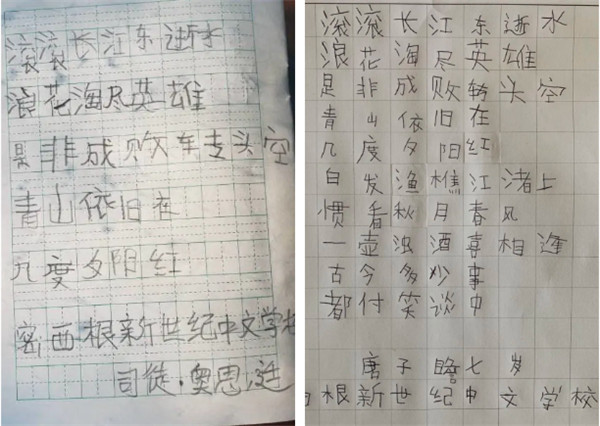 滚滚长江东逝水
浪花淘尽英雄
是非成败转头空
青山依旧在
几度夕阳红
密西根新世纪中文学校
司徒·奥思
滚滚长江东逝水
浪花淘尽英雄
是非成败转头空
青山依旧在
几度夕阳红
白发渔樵江渚上
惯看秋月春风
一壶浊酒喜相逢
古今多少事
都付笑谈中
唐子瞻七岁
根新世纪中文学校